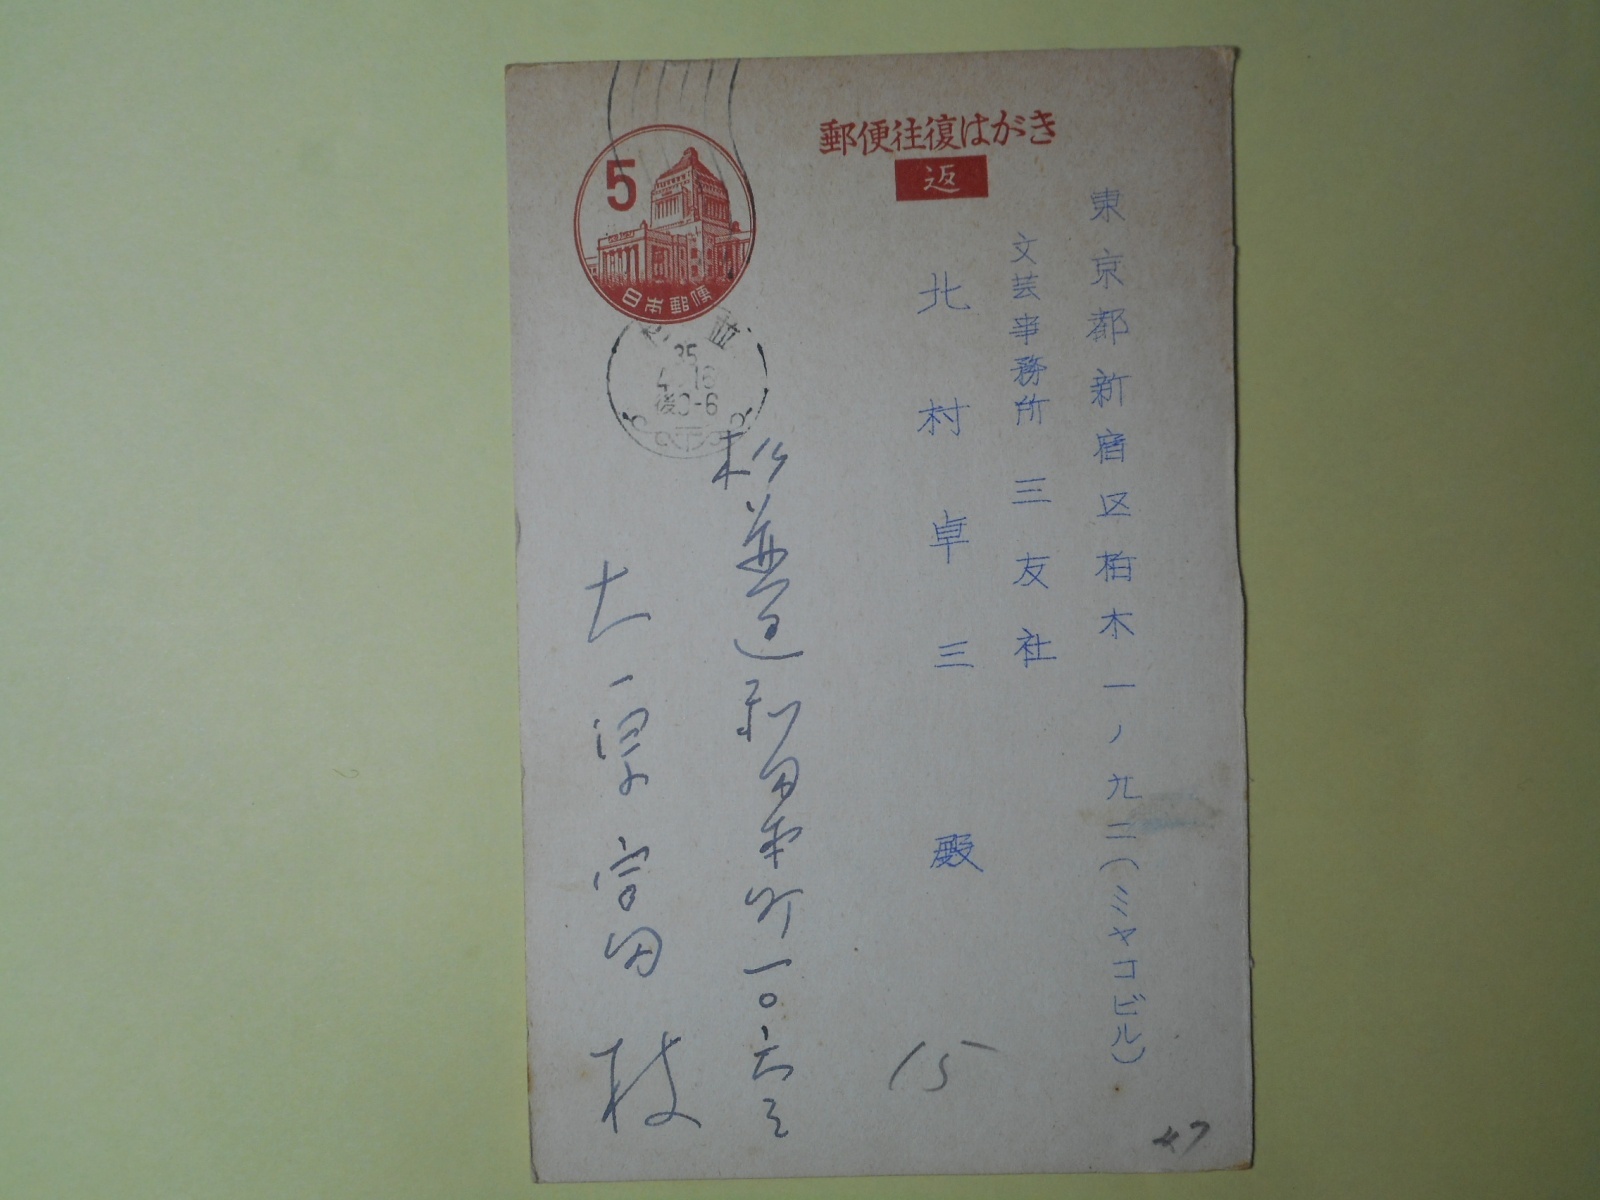 郵便往復はがき
返
5
日本郵便
東京都新宿区柏木一ノ九二(ミヤコビル)
文芸事務所 三友社
北村卓三殿
35
4. 16
後0-6
杉並区和田本町一〇六三
大澤富田枝
15
47